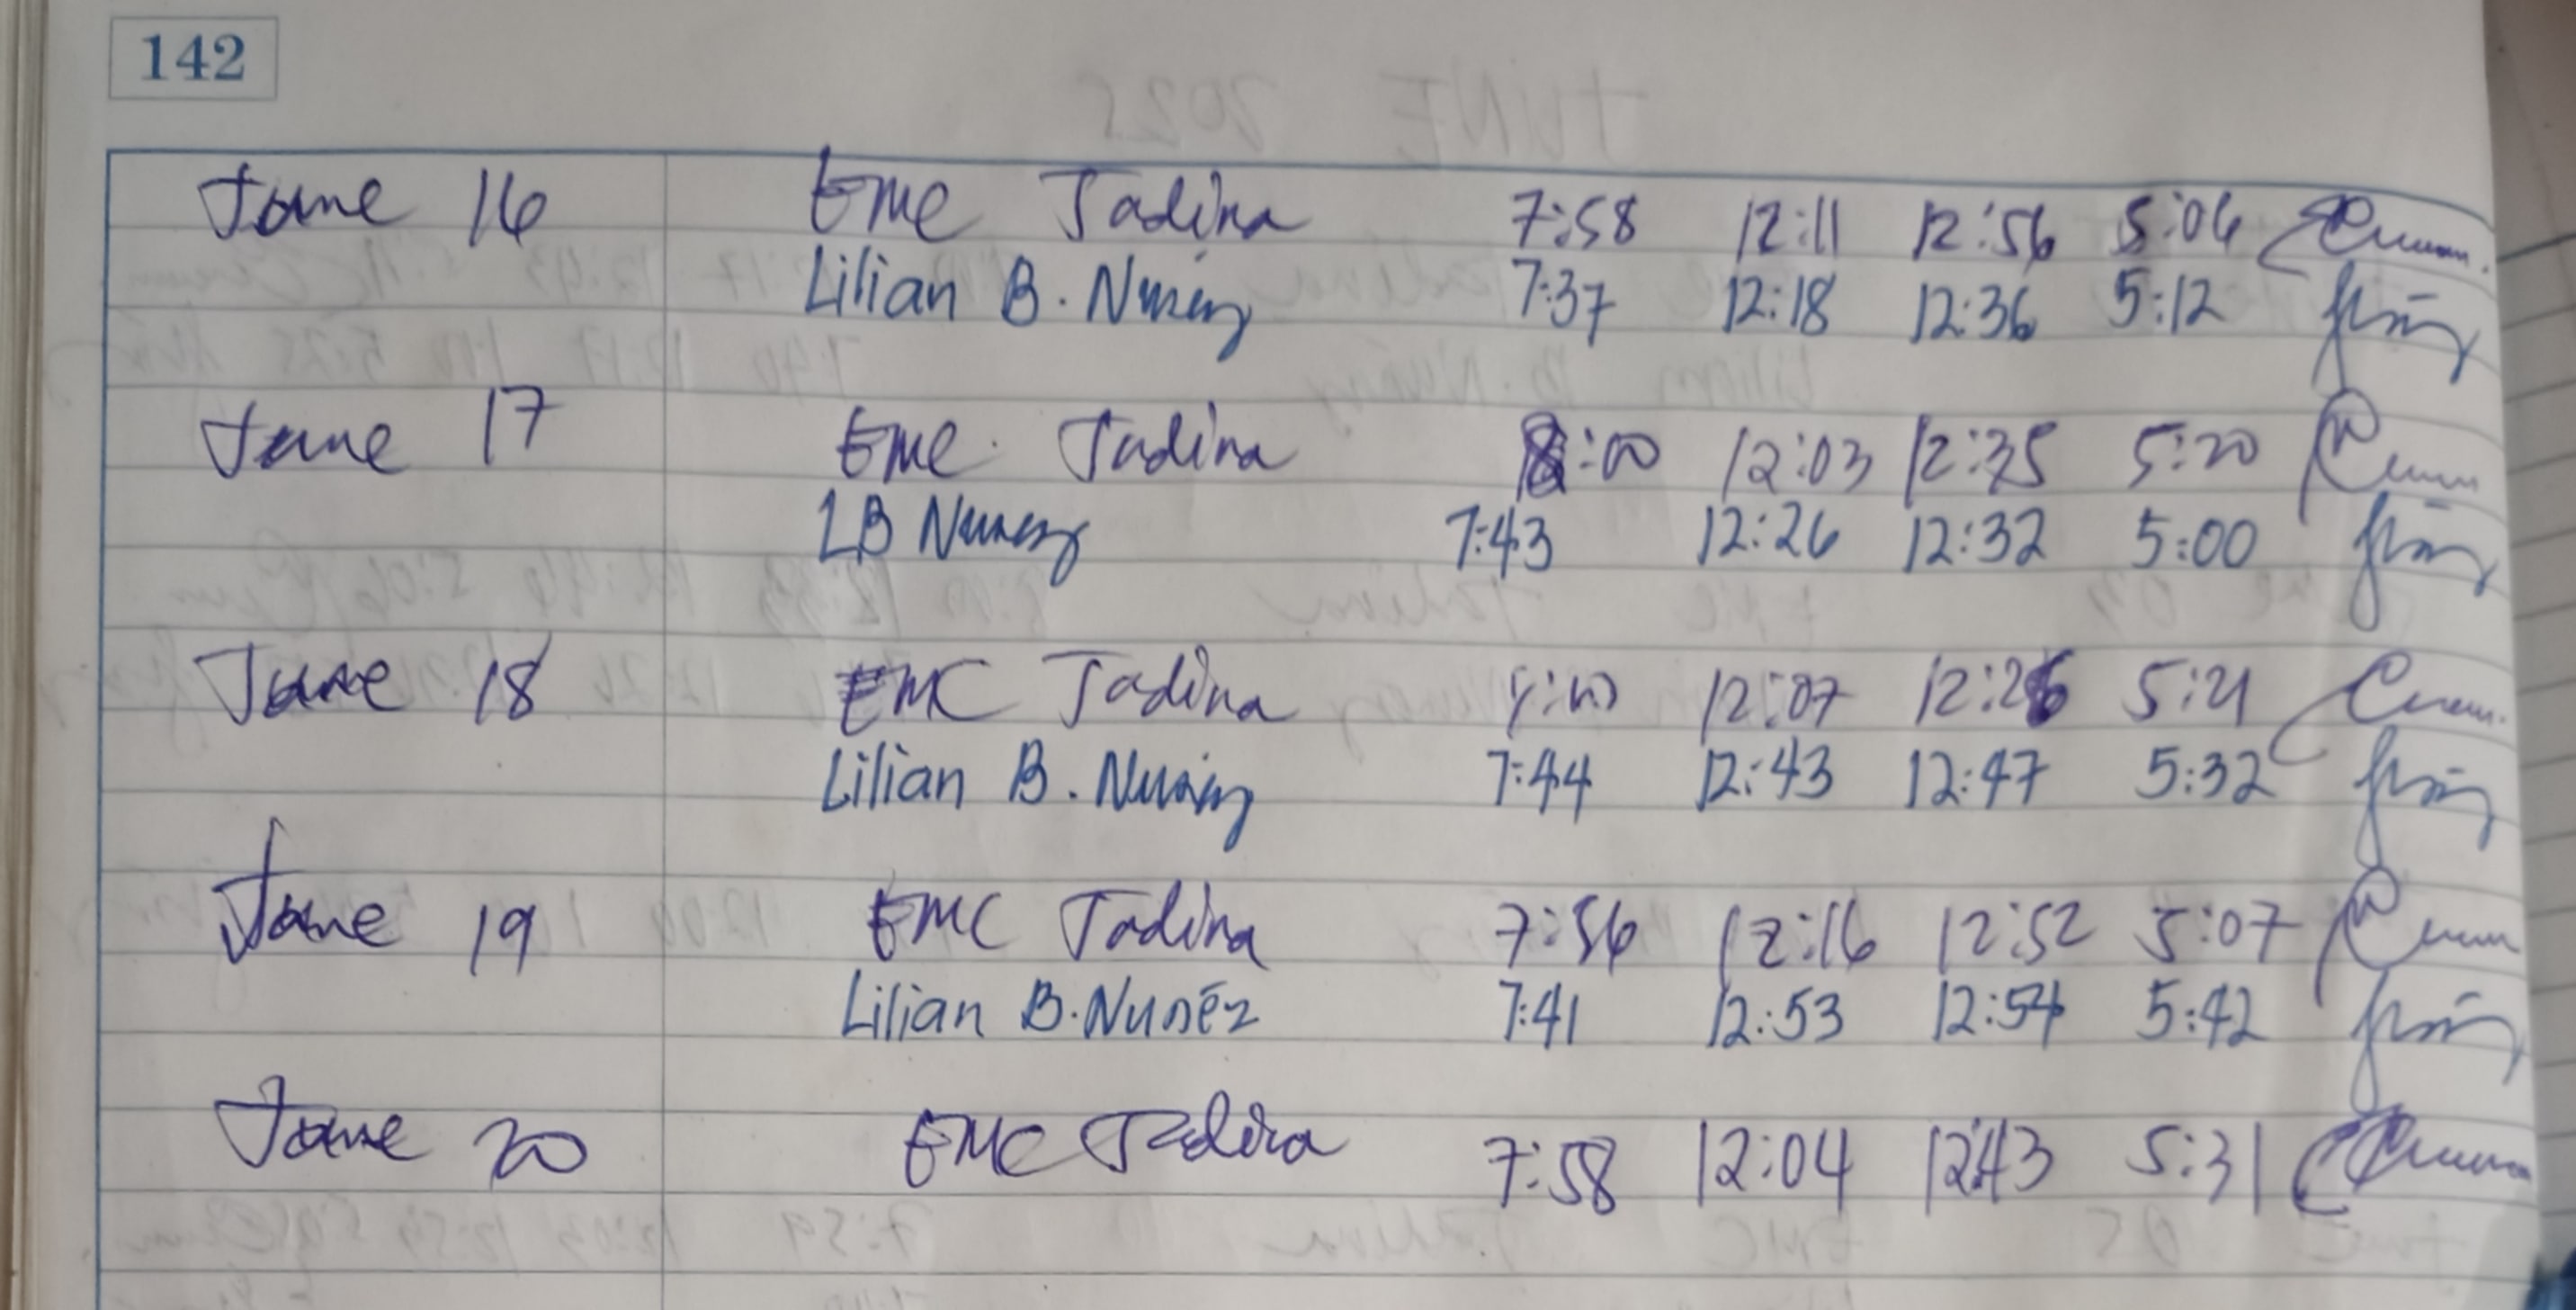 142
June 16 EMC Tadina 7:58 12:11 12:56 5:06
Lilian B. Nunez 7:37 12:18 12:36 5:12
June 17 EMC Tadina 8:00 12:03 12:35 5:20
LB Nunez 7:43 12:26 12:32 5:00
June 18 EMC Tadina 12:07 12:26 5:21
Lilian B. Nunez 7:44 12:43 12:47 5:32
June 19 EMC Tadina 7:56 12:16 12:52 5:07
Lilian B. Nunez 7:41 12:53 12:54 5:42
June 20 EMC Tadina 7:58 12:04 12:43 5:31